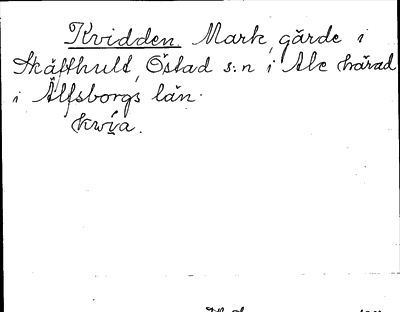 Kvidden Mark, gärde i
Skäfthult, Östad s:n i Ale härad
i Älfsborgs län.
Kwi̱a.